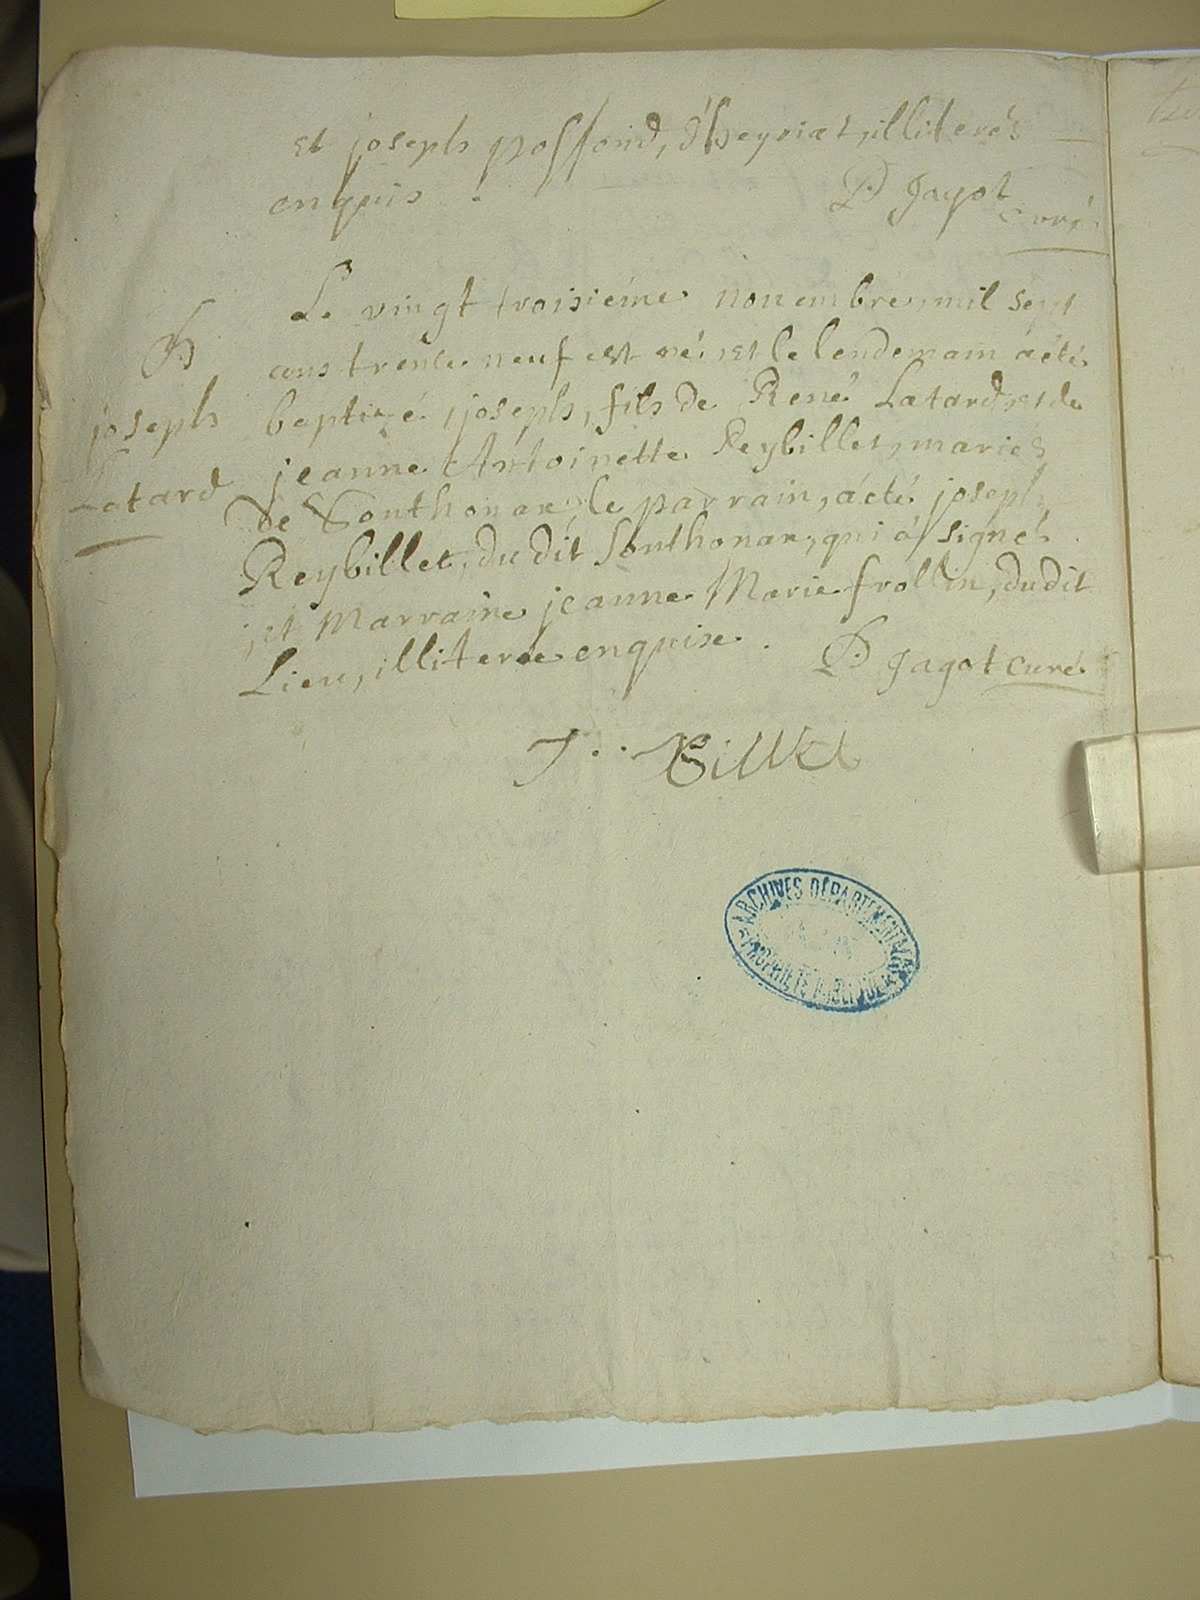 et joseph possond, d'heyriat, illiterés
enquis . P. Jagot
curé
Le vingt troisiéme novembre, mil sept
cens trente neuf est né, et le lendemain a été
baptizé, joseph, fils de René Latard, et de
jeanne Antoinette Reybillet, mariés
de Sonthonax, le parrain, a été joseph
Reybillet, du dit Sonthonax, qui a signé
, et Marraine jeanne Marie frollin, du dit
Lieu, illiterée enquise . P. Jagot curé
B
joseph
Latard
J.. Billet
ARCHIVES DÉPARTEMENTALES
PROPRIÉTÉ PUBLIQUE